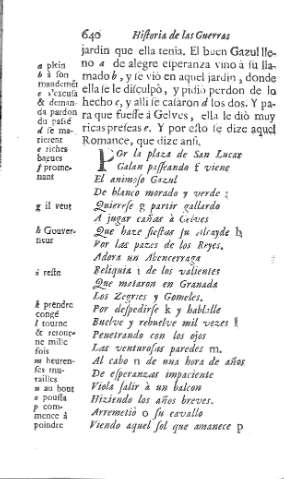 640 Historia de las Guerras
jardin que ella tenia. El buen Gazul lle-
no a de alegre esperanza vino à su lla-
mado b, y se viò en aquel jardin, donde
ella se le disculpò, y pidio perdon de lo
hecho c, y alli se casaron d los dos. Y pa-
ra que fuesse à Gelves, ella le diò muy
ricas preseas e. Y por esto se dize aquel
Romance, que dize ansi.
POr la plaza de San Lucar
Galan passeando f viene
El animoso Gazul
De blanco morado y verde ;
Quierese g partir gallardo
A jugar cañas à Gelves
Que haze fiestas su Alcayde h
Por las pazes de los Reyes.
Adora un Abencerraga
Reliquia i de los valientes
Que mataron en Granada
Los Zegries y Gomeles.
Por despedirse k y hablalle
Buelve y rebuelve mil vezes l
Penetrando con los ojos
Las venturosas paredes m.
Al cabo n de una hora de años
De esperanzas impaciente
Viola salir à un balcon
Hiziendo los años breves.
Arremetiò o su cavallo
Viendo aquel sol que amanece p
a plein
b à son
mandemẽt
c s'excusa
& deman-
da pardon
du passé
d se ma-
rierent
e riches
bagues
f prome-
nant
g il veut
h Gouver-
neur
i reste
k prendre
congé
l tourne
& retour-
ne mille
fois
m heuren-
ses mu-
railles
n au bout
o poussa
p com-
mence à
poindre